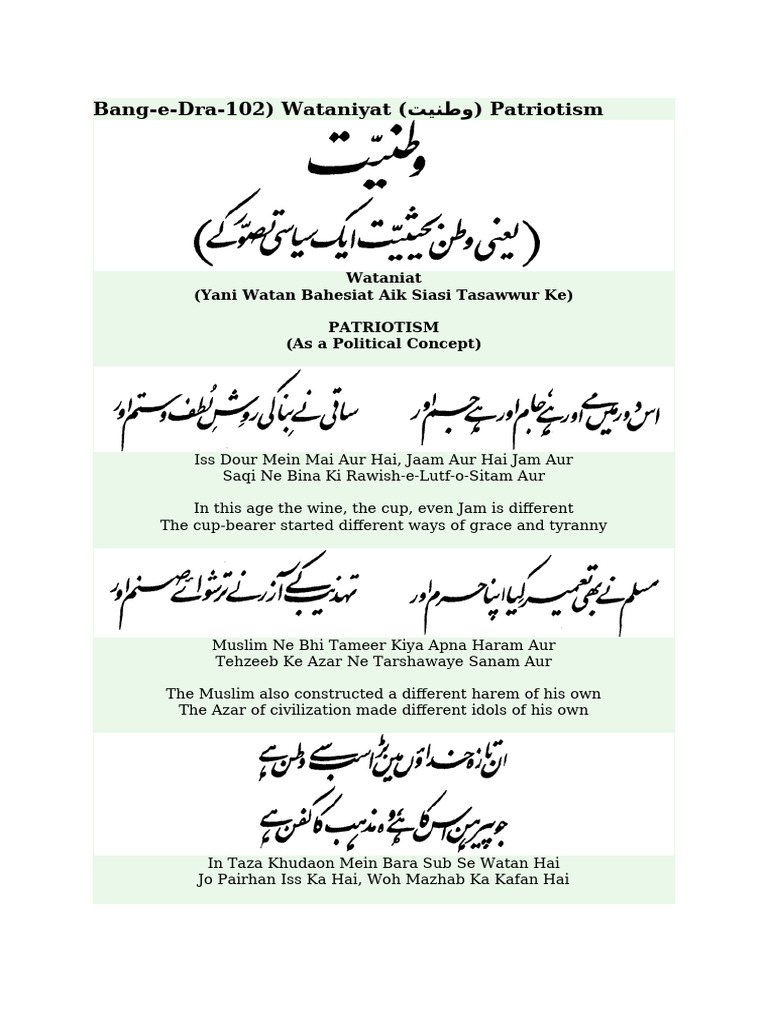 Bang-e-Dra-102) Wataniyat (وطنیت) Patriotism
وطنیّت
(یعنی وطن بحیثیّت ایک سیاسی تصوّر کے)
Wataniat
(Yani Watan Bahesiat Aik Siasi Tasawwur Ke)
PATRIOTISM
(As a Political Concept)
اس دور میں مے اور ہے، جام اور ہے جم اور
ساقی نے بِنا کی روِشِ لُطف و ستم اور
Iss Dour Mein Mai Aur Hai, Jaam Aur Hai Jam Aur
Saqi Ne Bina Ki Rawish-e-Lutf-o-Sitam Aur
In this age the wine, the cup, even Jam is different
The cup-bearer started different ways of grace and tyranny
مسلم نے بھی تعمیر کیا اپنا حرم اور
تہذیب کے آزر نے ترشوائے صنم اور
Muslim Ne Bhi Tameer Kiya Apna Haram Aur
Tehzeeb Ke Azar Ne Tarshawaye Sanam Aur
The Muslim also constructed a different harem of his own
The Azar of civilization made different idols of his own
ان تازہ خداؤں میں بڑا سب سے وطن ہے
جو پیرہن اس کا ہے، وہ مذہب کا کفن ہے
In Taza Khudaon Mein Bara Sub Se Watan Hai
Jo Pairhan Iss Ka Hai, Woh Mazhab Ka Kafan Hai